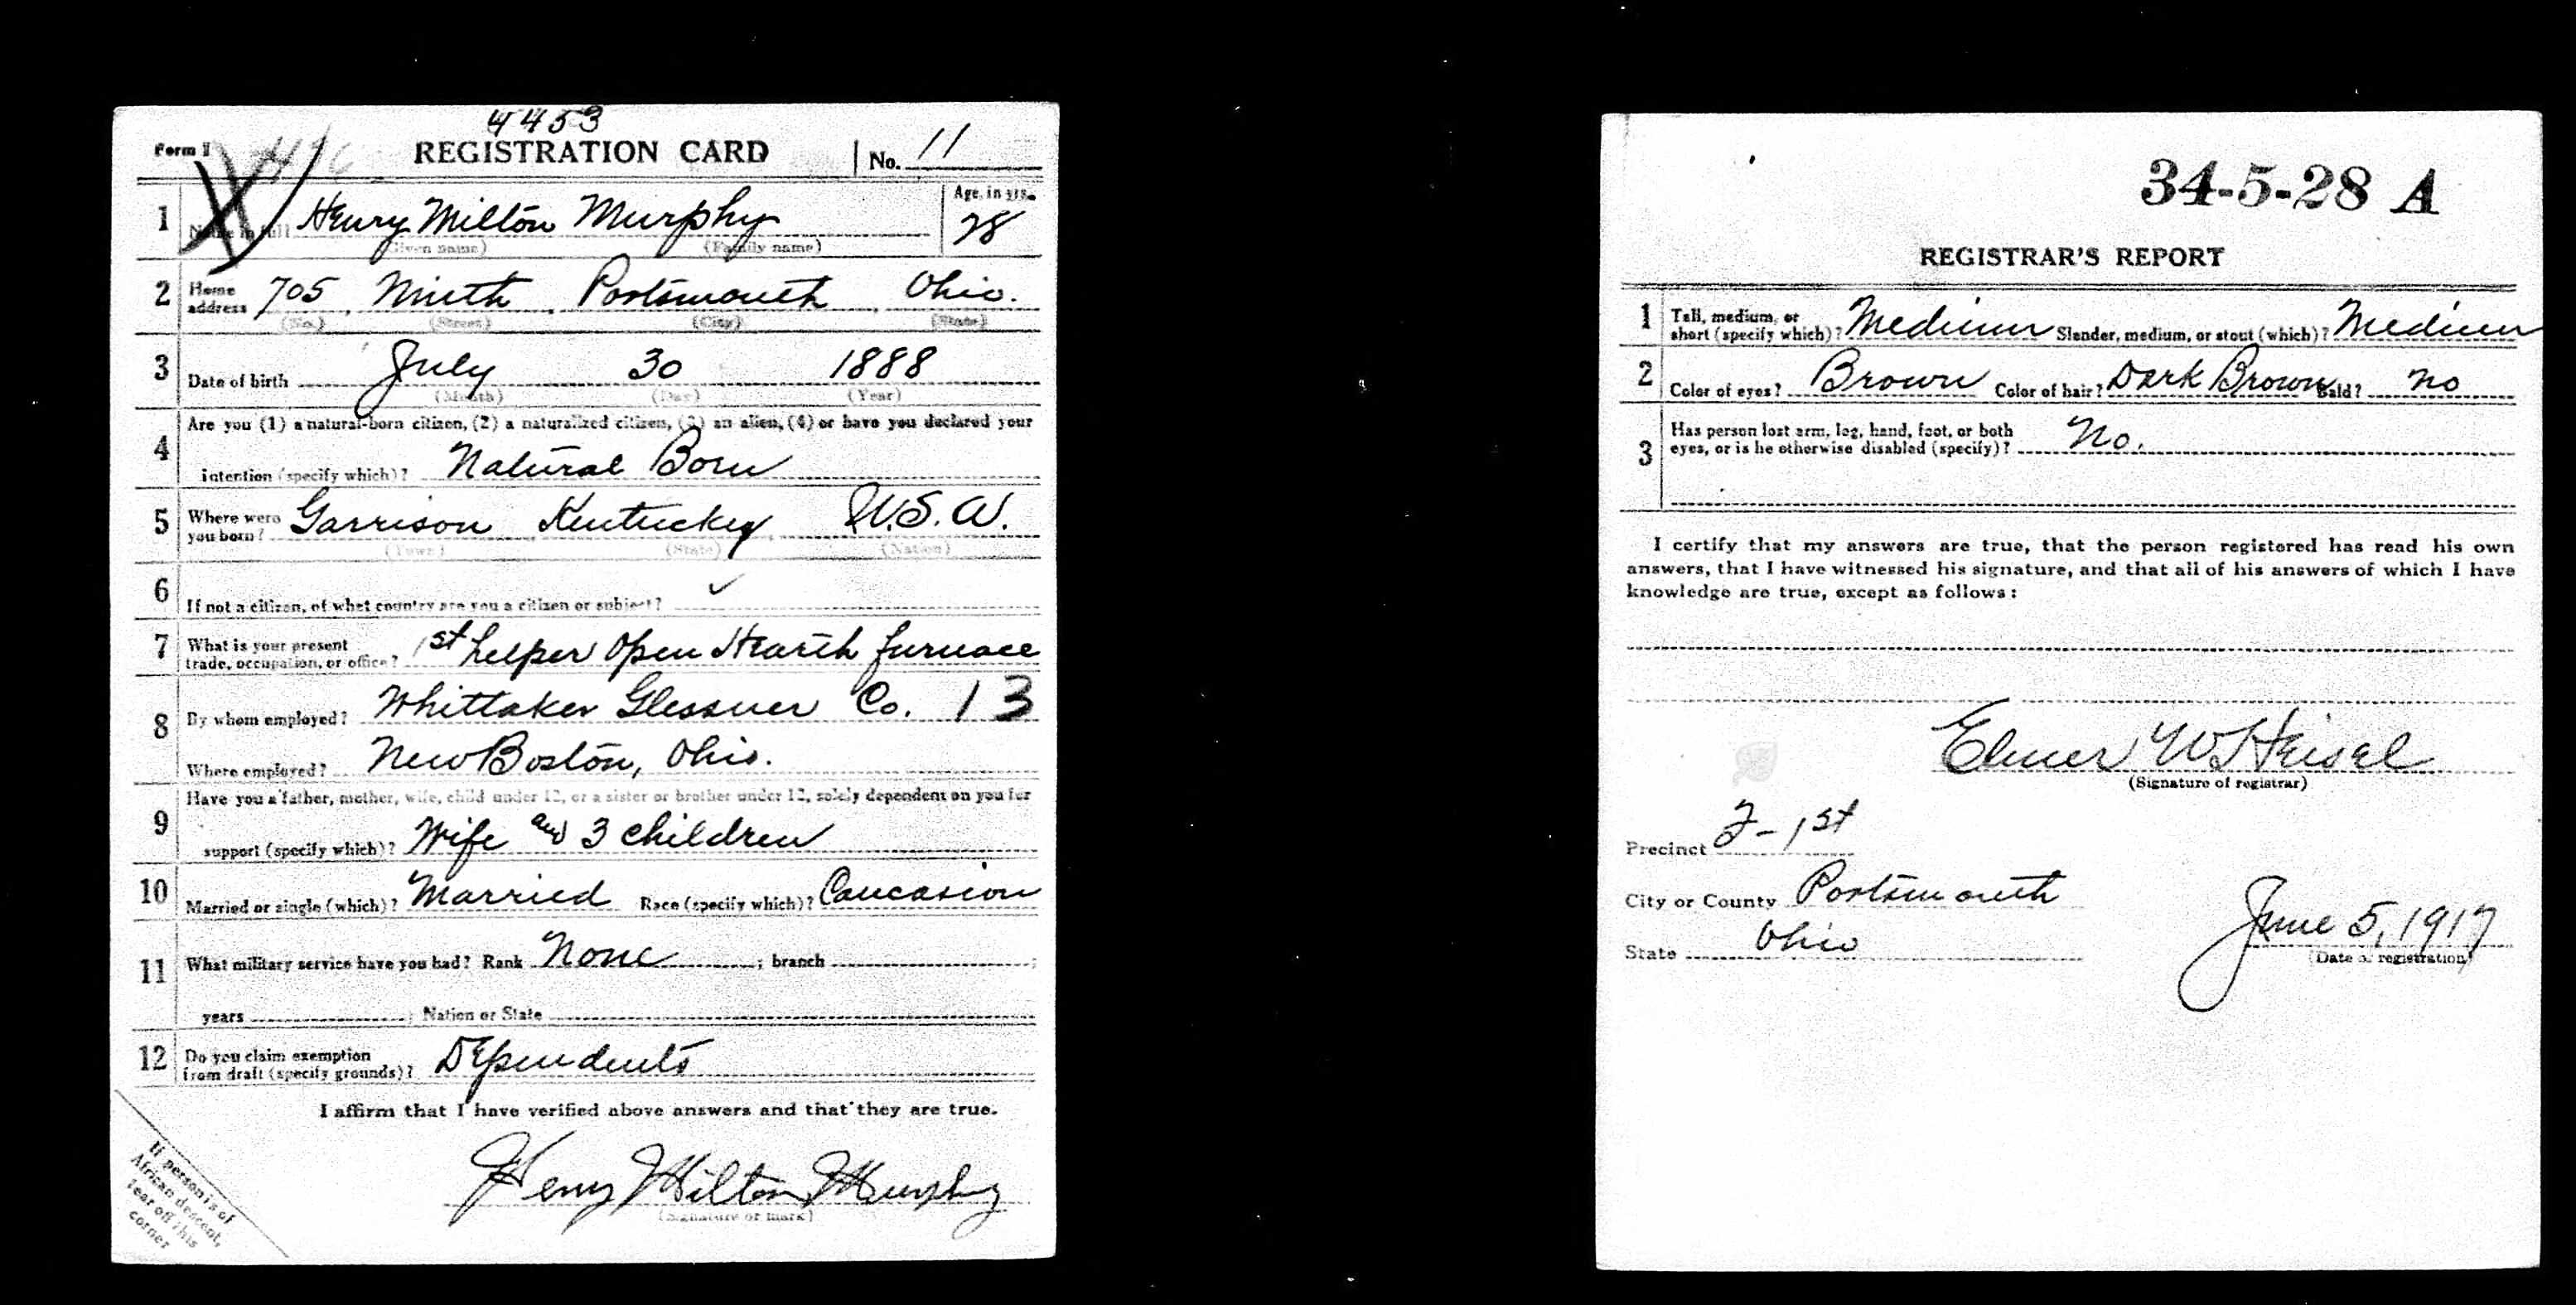 4453
Form 1 REGISTRATION CARD No. 11
1 Name in full Henry Milton Murphy Age, in yrs. 28
(Given name) (Family name)
2 Home address 705 Ninth Portsmouth, Ohio.
(No.) (Street) (City) (State)
3 Date of birth July 30 1888
(Month) (Day) (Year)
4 Are you (1) a natural-born citizen, (2) a naturalized citizen, (3) an alien, (4) or have you declared your
intention (specify which)? Natural Born
5 Where were you born? Garrison, Kentucky, U.S.A.
(Town) (State) (Nation)
6 If not a citizen, of what country are you a citizen or subject? ✓
7 What is your present trade, occupation, or office? 1st helper Open Hearth furnace
8 By whom employed? Whittaker Glessner Co. 13
Where employed? New Boston, Ohio.
9 Have you a father, mother, wife, child under 12, or a sister or brother under 12, solely dependent on you for
support (specify which)? Wife and 3 children
10 Married or single (which)? Married Race (specify which)? Caucasion
11 What military service have you had? Rank None ; branch ;
years ; Nation or State
12 Do you claim exemption from draft (specify grounds)? Dependents
I affirm that I have verified above answers and that they are true.
Henry Milton Murphy
(Signature or mark)
If person is of
African descent,
tear off this
corner
34-5-28 A
REGISTRAR'S REPORT
1 Tall, medium, or short (specify which)? Medium Slender, medium, or stout (which)? Medium
2 Color of eyes? Brown Color of hair? Dark Brown Bald? No
3 Has person lost arm, leg, hand, foot, or both eyes, or is he otherwise disabled (specify)? No.
I certify that my answers are true, that the person registered has read his own
answers, that I have witnessed his signature, and that all of his answers of which I have
knowledge are true, except as follows:
Elmer W Heisel
(Signature of registrar)
Precinct 2-1st
City or County Portsmouth
State Ohio
June 5, 1917
(Date of registration)